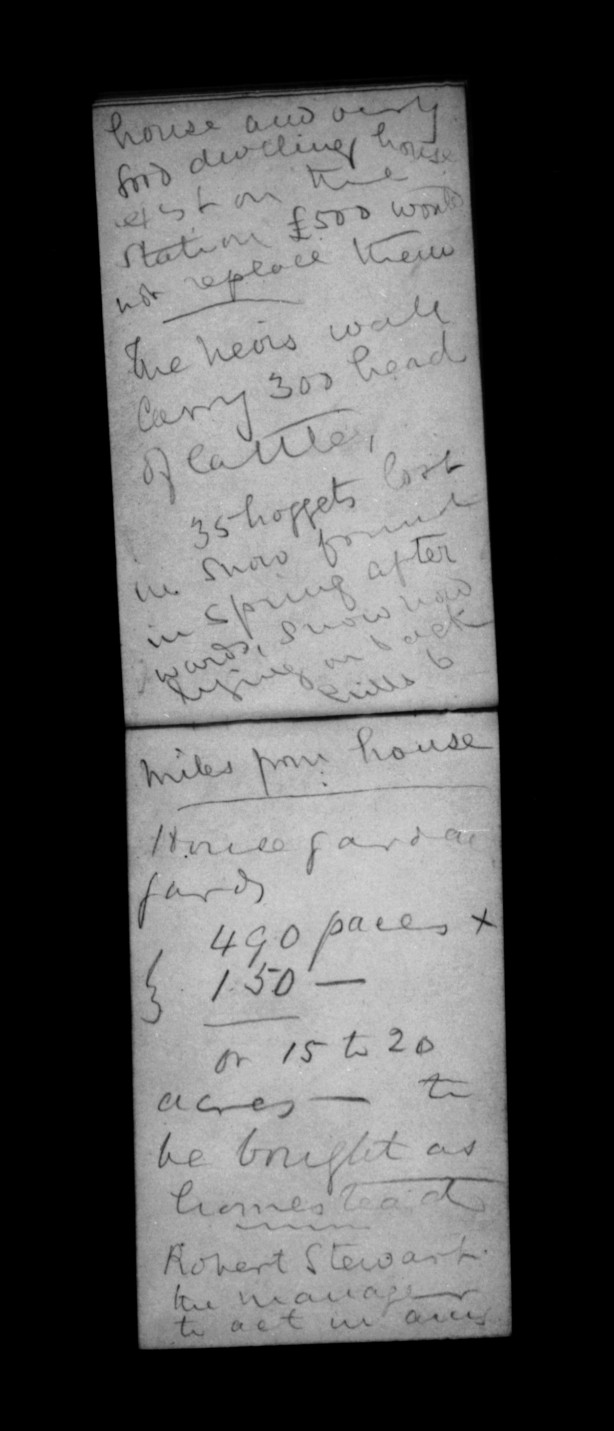 house and very
good dwelling house
exist on the
station £500 would
not replace them
The heirs walk
Carry 300 head
of Cattle,
35 hoggets lost
in snow found
in spring after
wards, snow now
lying on back
hills 6
miles from house
House garden
yards
490 paces x
1.50 —
or 15 to 20
acres — to
be bought as
homestead
Robert Stewart
the manager
to act in